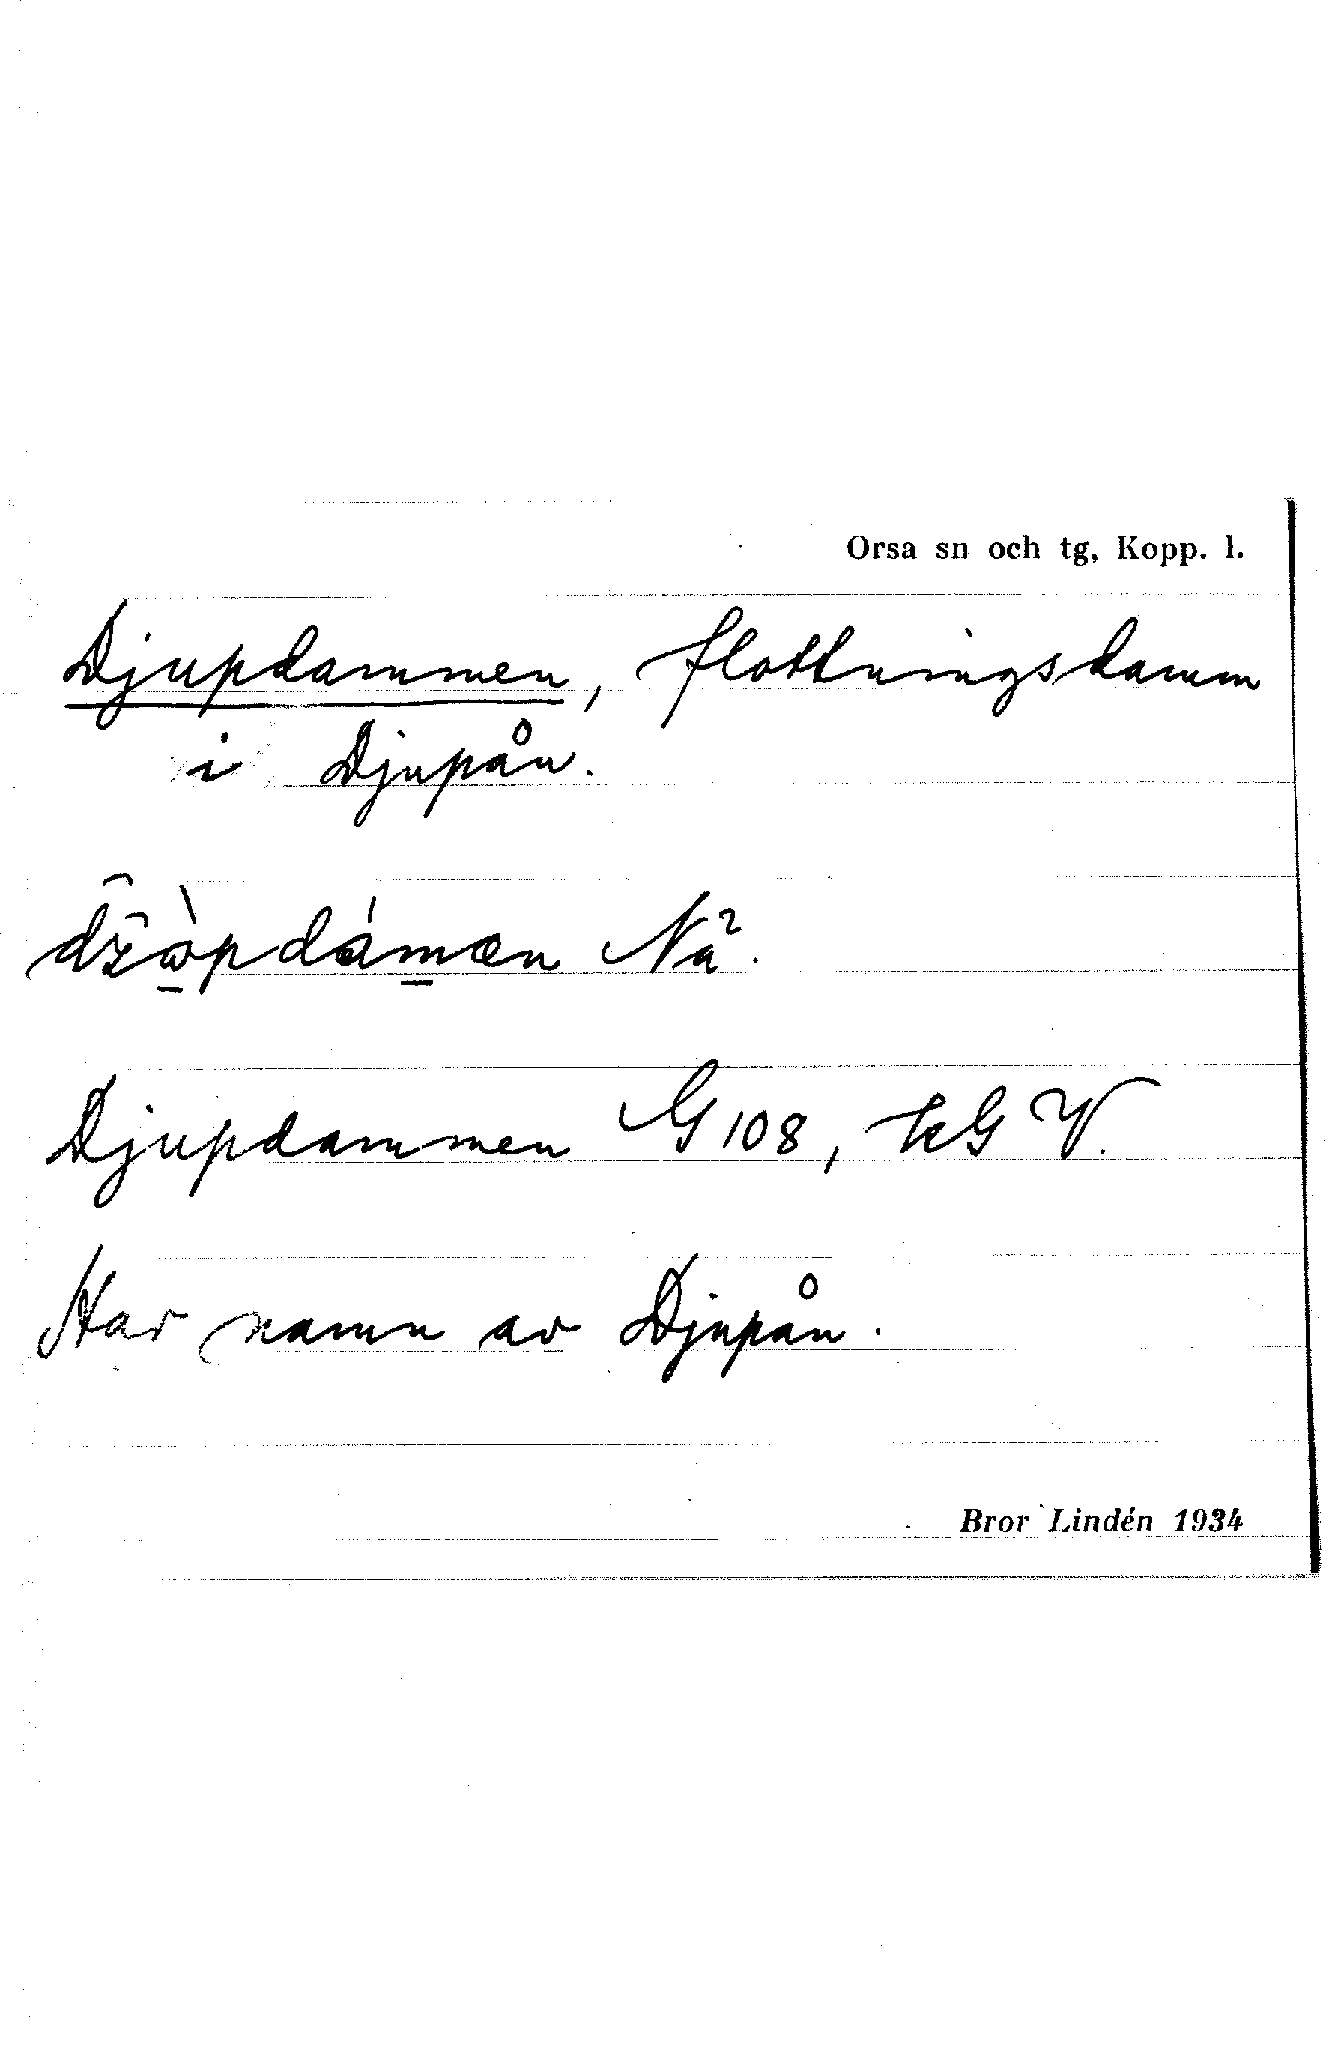 Orsa sn och tg, Kopp. l.
Djupdammen, flottningsdamm
i Djupån.
Nä².
Djupdammen G 108, kG V.
Har namn av Djupån.
Bror Lindén 1934